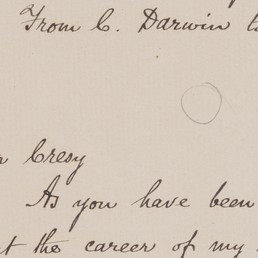 From C. Darwin to
Cresy
As you have been
the career of my